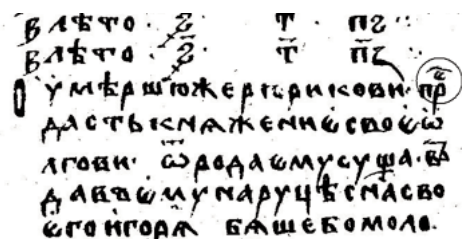 В лѣто ҂ѕ · т · пѕ ·:
В лѣто ҂ѕ · т · пз :
Оумѣршюжерюрикови· пр
дастькнѧжениѥсвоѥѡ
лгови· ѿродаѥмусуща· въ
давъѥмунаруцѣснасво
ѥгоигорѧ бѧшебомоло.